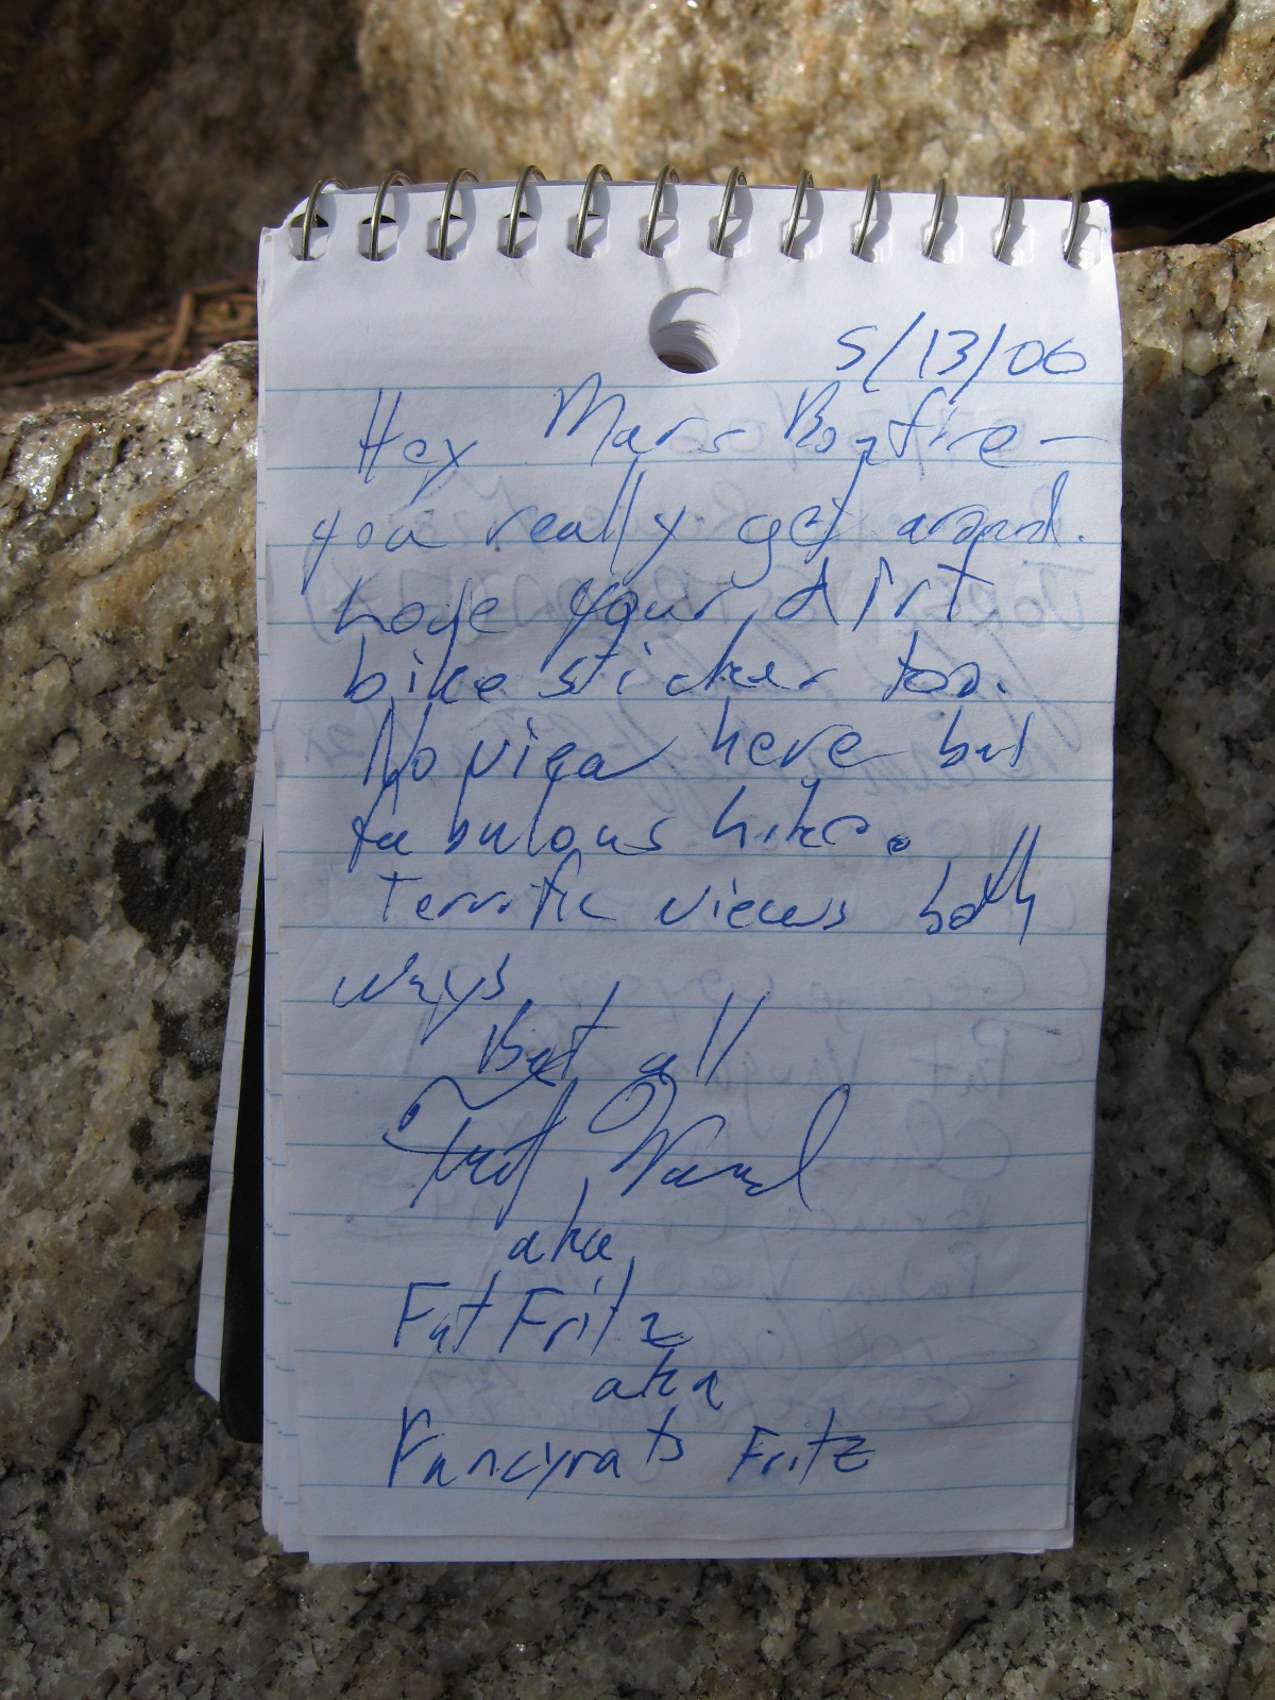 5/13/06
Hey Mars Bonfire -
you really get around.
love your dirt
bike sticker too.
No view here but
fabulous hike.
Terrific views both
ways
Best all
aka
Fat Fritz
aka
Fancyrats Fritz